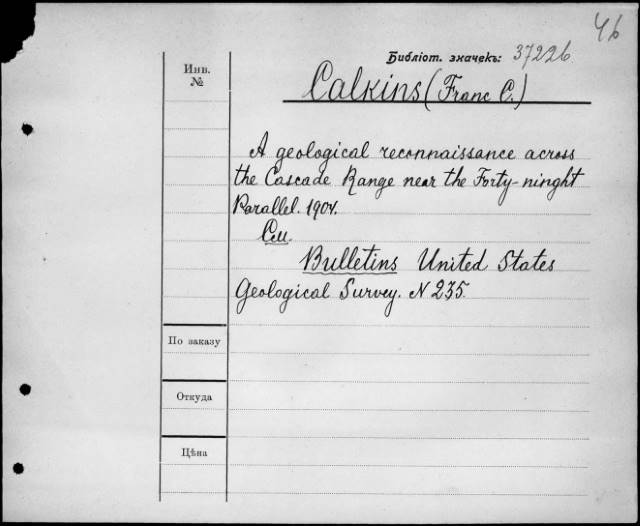 46
Библіот. значекъ: 37226.
Инв.
№
Calkins (Franc C.)
A geological reconnaissance across
the Cascade Range near the Forty-ninght
Parallel. 1904.
См.
Bulletins United States
Geological Survey. N 235.
По заказу
Откуда
Цѣна